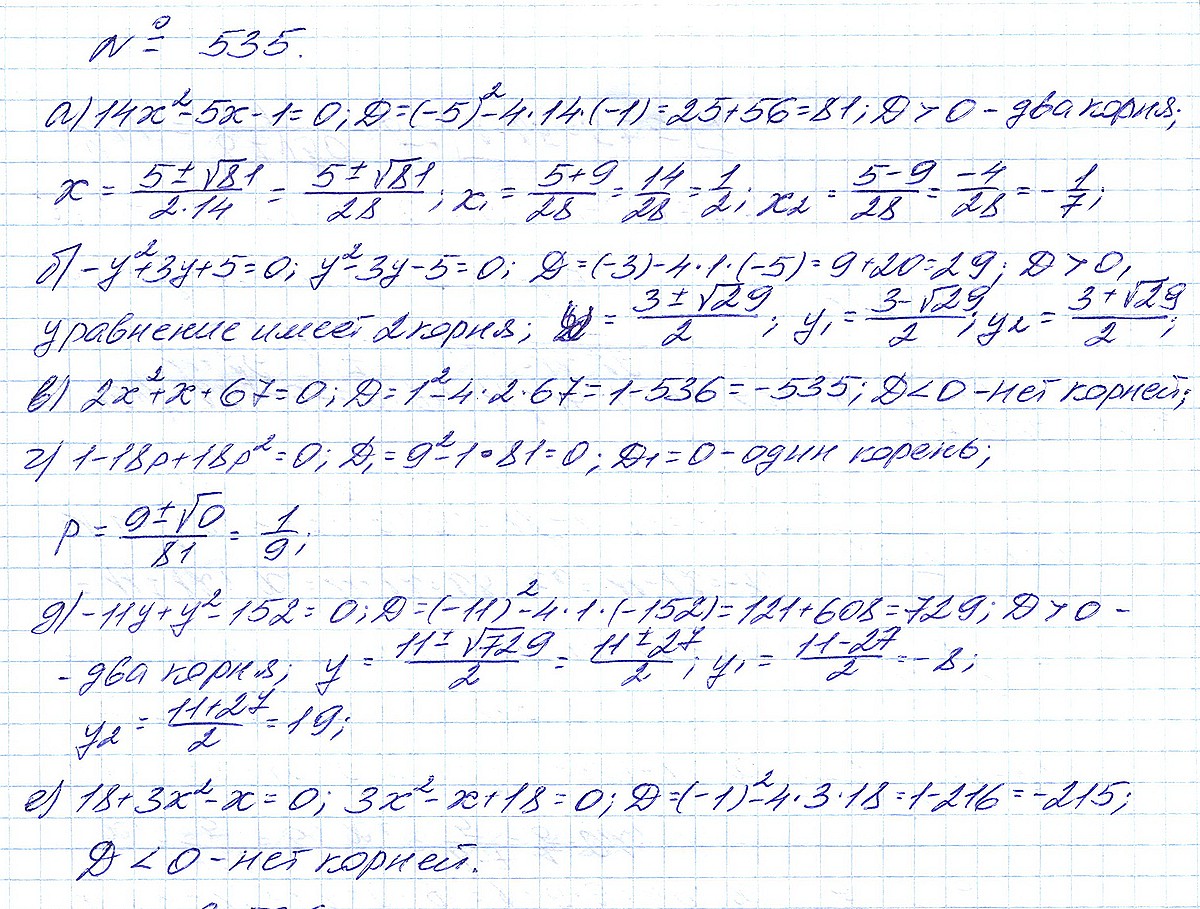 № 535.
а) 14x² - 5x - 1 = 0; D = (-5)² - 4·14·(-1) = 25 + 56 = 81; D > 0 - два корня;
x = (5 ± √81)/(2·14) = (5 ± √81)/28; x₁ = (5+9)/28 = 14/28 = 1/2; x₂ = (5-9)/28 = -4/28 = -1/7;
б) -y² + 3y + 5 = 0; y² - 3y - 5 = 0; D = (-3) - 4·1·(-5) = 9 + 20 = 29; D > 0,
уравнение имеет 2 корня; = (3 ± √29)/2; y₁ = (3 - √29)/2; y₂ = (3 + √29)/2;
в) 2x² + x + 67 = 0; D = 1² - 4·2·67 = 1 - 536 = -535; D < 0 - нет корней;
г) 1 - 18p + 18p² = 0; D₁ = 9² - 1·81 = 0; D₁ = 0 - один корень;
p = (9 ± √0)/81 = 1/9;
д) -11y + y² - 152 = 0; D = (-11)² - 4·1·(-152) = 121 + 608 = 729; D > 0 -
- два корня; y = (11 ± √729)/2 = (11 ± 27)/2; y₁ = (11-27)/2 = -8;
y₂ = (11+27)/2 = 19;
е) 18 + 3x² - x = 0; 3x² - x + 18 = 0; D = (-1)² - 4·3·18 = 1 - 216 = -215;
D < 0 - нет корней.